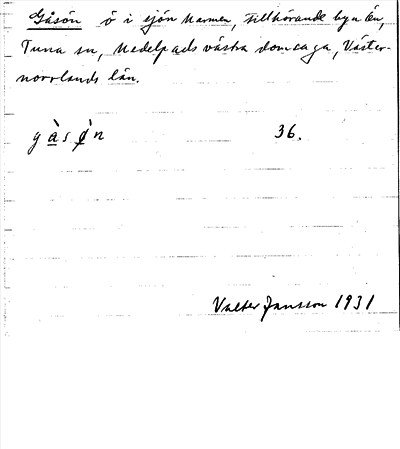 Gåsön ö i sjön Marmen, tillhörande byn Ön,
Tuna sn, Medelpads västra domsaga, Väster-
norrlands län.
gàsø̀n 36.
Valter Jansson 1931